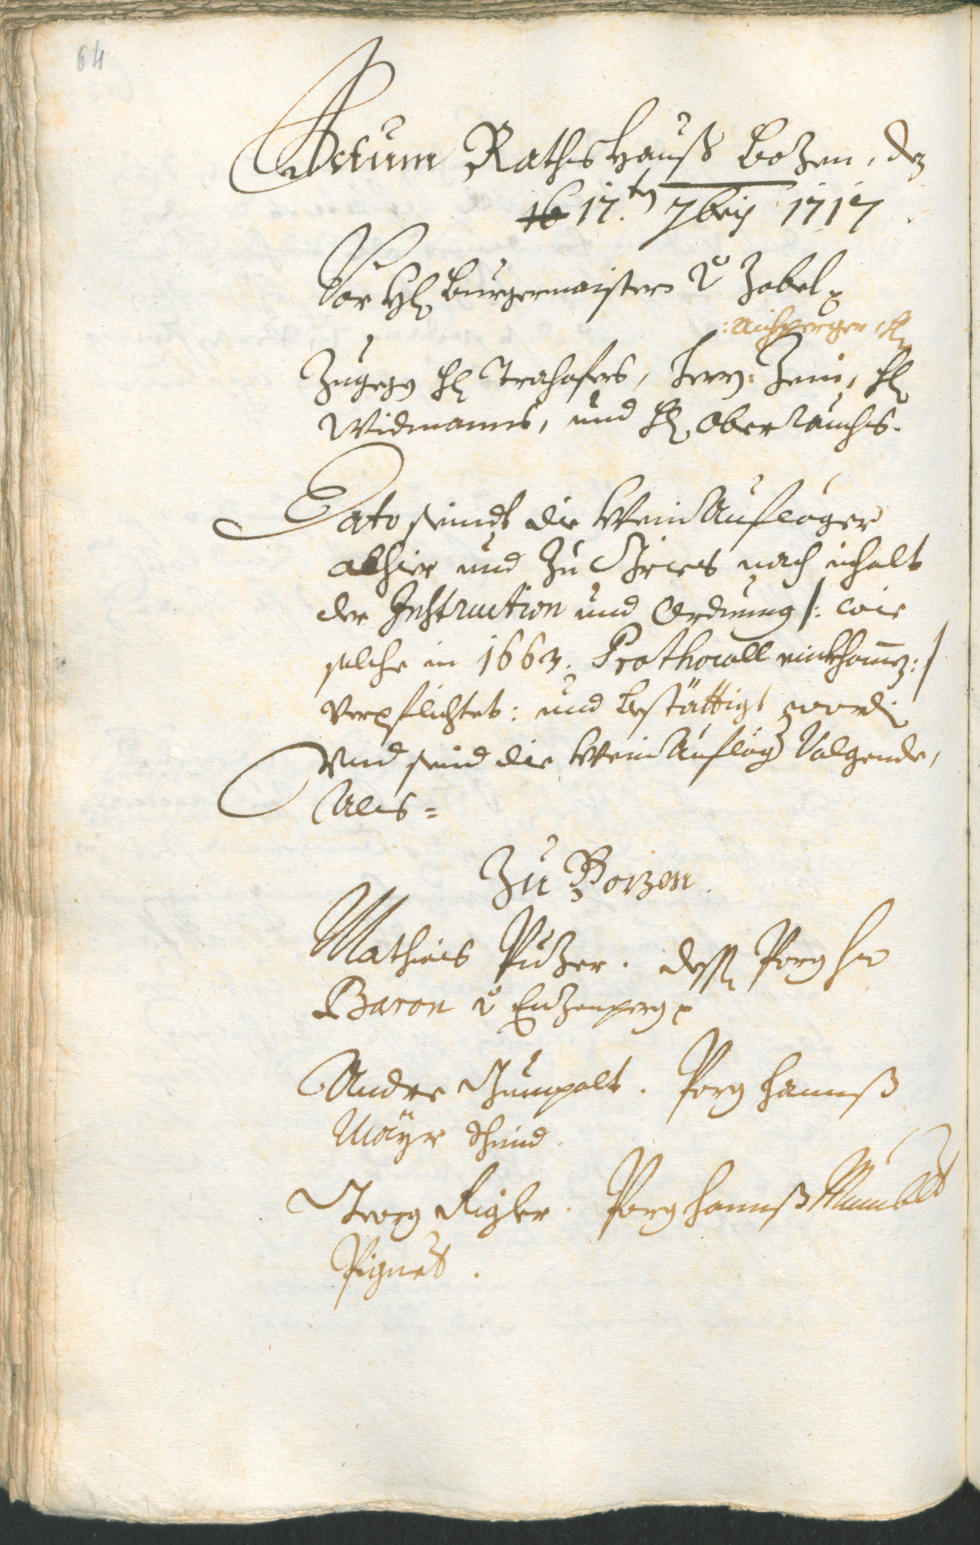 64
Actum Rathshauß Bozen, den
16 17.ten 7bris 1717
Vor H: Burgermaister v Zobel
Aichperger
Zugegen H: Trahofers, Ferd: Zeni, H:
Widmanns, und H: Oberrauchs.
Dato seindt die Wein Aufleger
alhier und zu Gries nach inhalt
der Instruction und Ordnung /: wie
solche in 1663. Prothocoll einkhomen: /
verpflichtet: und bestättigt worden
Und seind die Wein Aufleger Volgende,
Als =
Zu Bozen.
Mathias Puzer. dessen Porg herr
Baron v Enzenperg
Andre Gumpolt. Porg hannß
Mayr Schmid.
Georg Rigler. Porg hannß
Pignet.